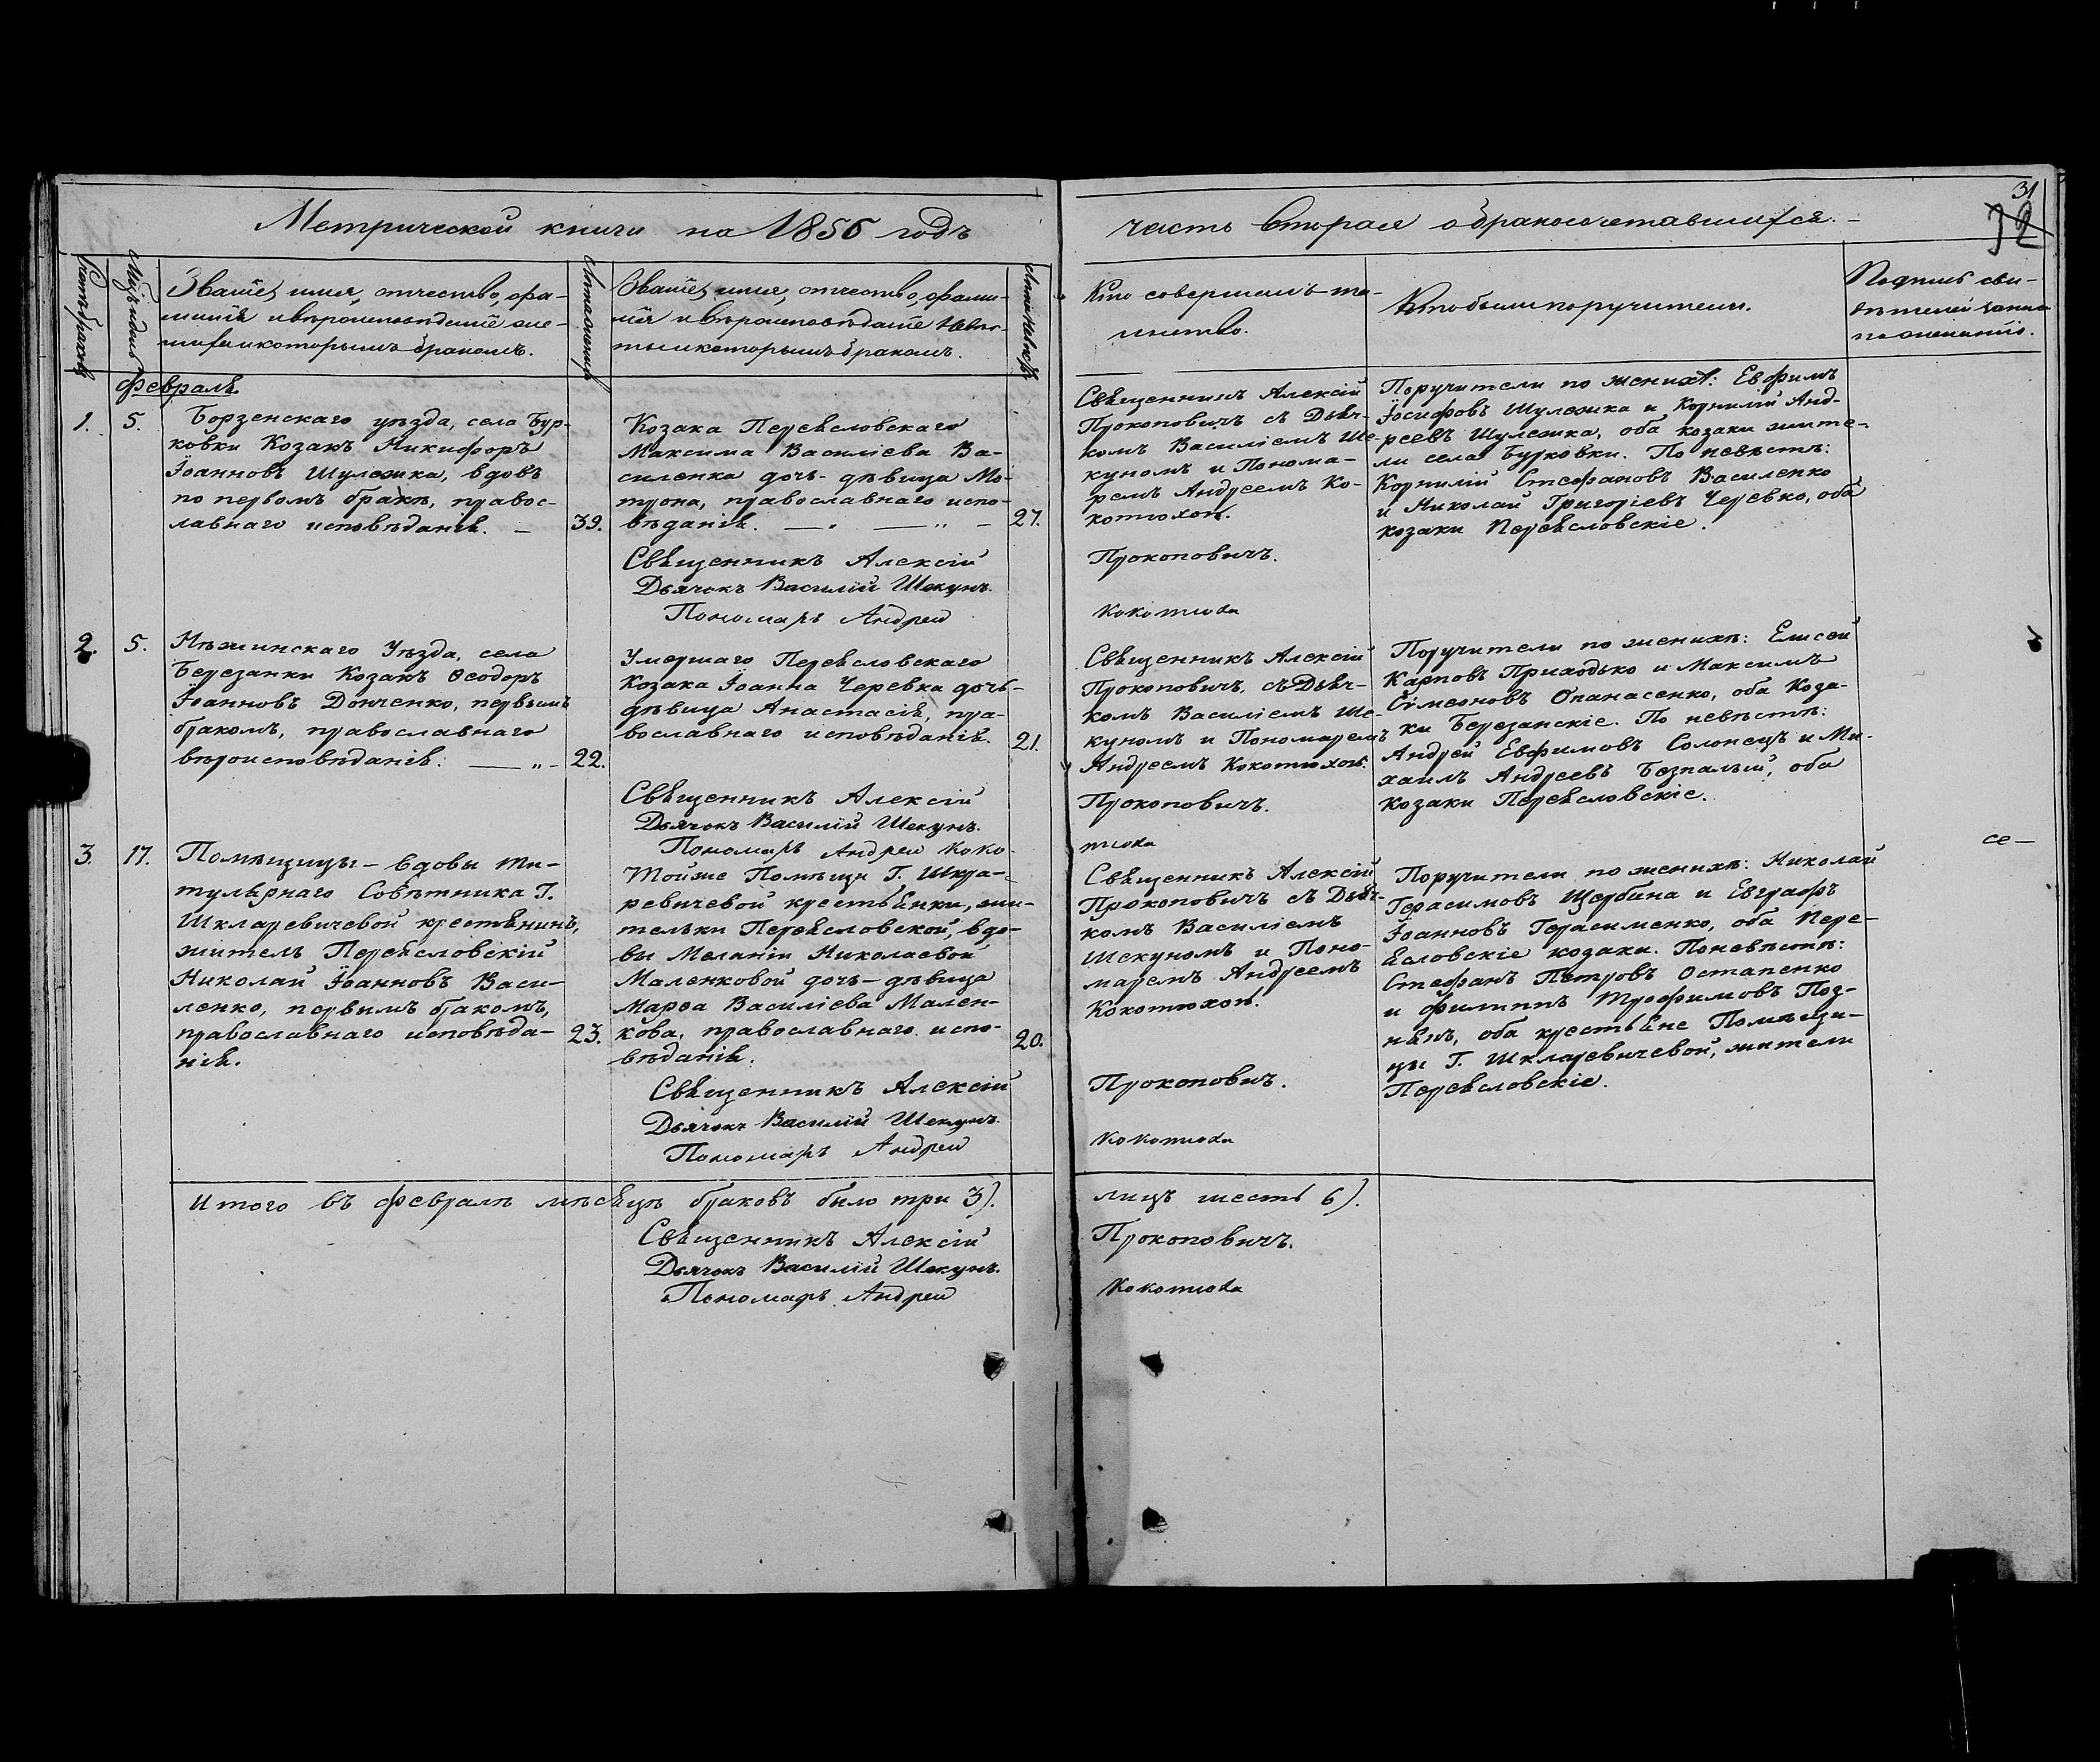 Метрической книги на 1856 годъ
часть вторая о бракосочетавшихся. –
31
32
Счетъ браковъ
Мѣс. и день
Званіе, имя, отчество, фа-
милія и вѣроисповѣданіе же-
ниха и которымъ бракомъ.
Лѣта жениха
Званіе, имя, отчество, фами-
лія и вѣроисповѣданіе невѣс-
ты и которымъ бракомъ.
Лѣта невѣсты
Кто совершалъ та-
инство.
Кто были поручители.
Подпись сви-
дѣтелей записи
по желанію.
Февраль
1.
5.
Борзенскаго уѣзда, села Бур-
ковки Козакъ Никифоръ
Іоанновъ Шулежка, вдовъ
по первомъ бракѣ, правос-
лавнаго исповѣданія. –
39.
Козака Переясловскаго
Максима Василіева Ва-
силенка дочь - дѣвица Мо-
трона, православнаго испо-
вѣданія. — „ — „ –
27.
Священникъ Алексій
Дьячокъ Василій Шекунъ.
Пономарь Андрей
Священникъ Алексій
Прокоповичъ съ Дьяч-
комъ Василіемъ Ше-
куномъ и Понома-
ремъ Андреемъ Ко-
котюхою.
Прокоповичъ.
Кокотюха
Поручители по женихѣ: Евфимъ
Іосифовъ Шулежка и Корнилій Анд-
реевъ Шулежка, оба козаки жите-
ли села Бурковки. По невѣстѣ:
Корнилій Стефановъ Василенко
и Николай Григоріевъ Черевко, оба
козаки Переясловскіе.
2.
5.
Нѣжинскаго Уѣзда, села
Березанки Козакъ Ѳеодоръ
Іоанновъ Донченко, первымъ
бракомъ, православнаго
вѣроисповѣданія: — „ –
22.
Умершаго Переясловскаго
Козака Іоанна Черевка дочь-
дѣвица Анастасія, пра-
вославнаго исповѣданія.
21.
Священникъ Алексій
Дьячокъ Василій Шекунъ.
Пономарь Андрей Коко-
Священникъ Алексій
Прокоповичъ, съ Дьяч-
комъ Василіемъ Ше-
куномъ и Пономаремъ
Андреемъ Кокотюхою.
Прокоповичъ.
тюха
Поручители по женихѣ: Елисей
Карповъ Приходько и Максимъ
Симеоновъ Опанасенко, оба Коза-
ки Березанскіе. По невѣстѣ:
Андрей Евфимовъ Солонецъ и Ми-
хаилъ Андреевъ Безпалый, оба
козаки Переясловскіе.
се –
3.
17.
Помѣщицы - вдовы Ти-
тулярнаго Совѣтника Г.
Шкляревичевой крестянинъ,
житель Переясловскій
Николай Іоанновъ Васи-
ленко, первымъ бракомъ,
православнаго исповѣда-
нія.
23.
Тойже Помѣщи Г. Шкля-
ревичевой крестьянки, жи-
тельки Переясловской, вдо-
вы Меланіи Николаевой
Маленковой дочь - дѣвица
Марѳа Василіева Мален-
кова, православнаго испо-
вѣданія.
20.
Священникъ Алексій
Дьячокъ Василій Шекунъ.
Пономарь Андрей
Священникъ Алексій
Прокоповичъ съ Дьяч-
комъ Василіемъ
Шекуномъ и Поно-
маремъ Андреемъ
Кокотюхою.
Прокоповичъ.
Кокотюха
Поручители по женихѣ: Николай
Герасимовъ Щербина и Евграфъ
Іоанновъ Герасименко, оба Пере-
ясловскіе козаки. По невѣстѣ:
Стефанъ Петровъ Остапенко
и Филиппъ Трофимовъ Поз-
някъ, оба крестьяне Помѣщи-
цы Г. Шкляревичевой, жители
Переясловскіе.
Итого въ февралѣ мѣсяцѣ браковъ было три 3).
лицъ шесть 6).
Священникъ Алексій
Дьячокъ Василій Шекунъ.
Пономарь Андрей
Прокоповичъ.
Кокотюха